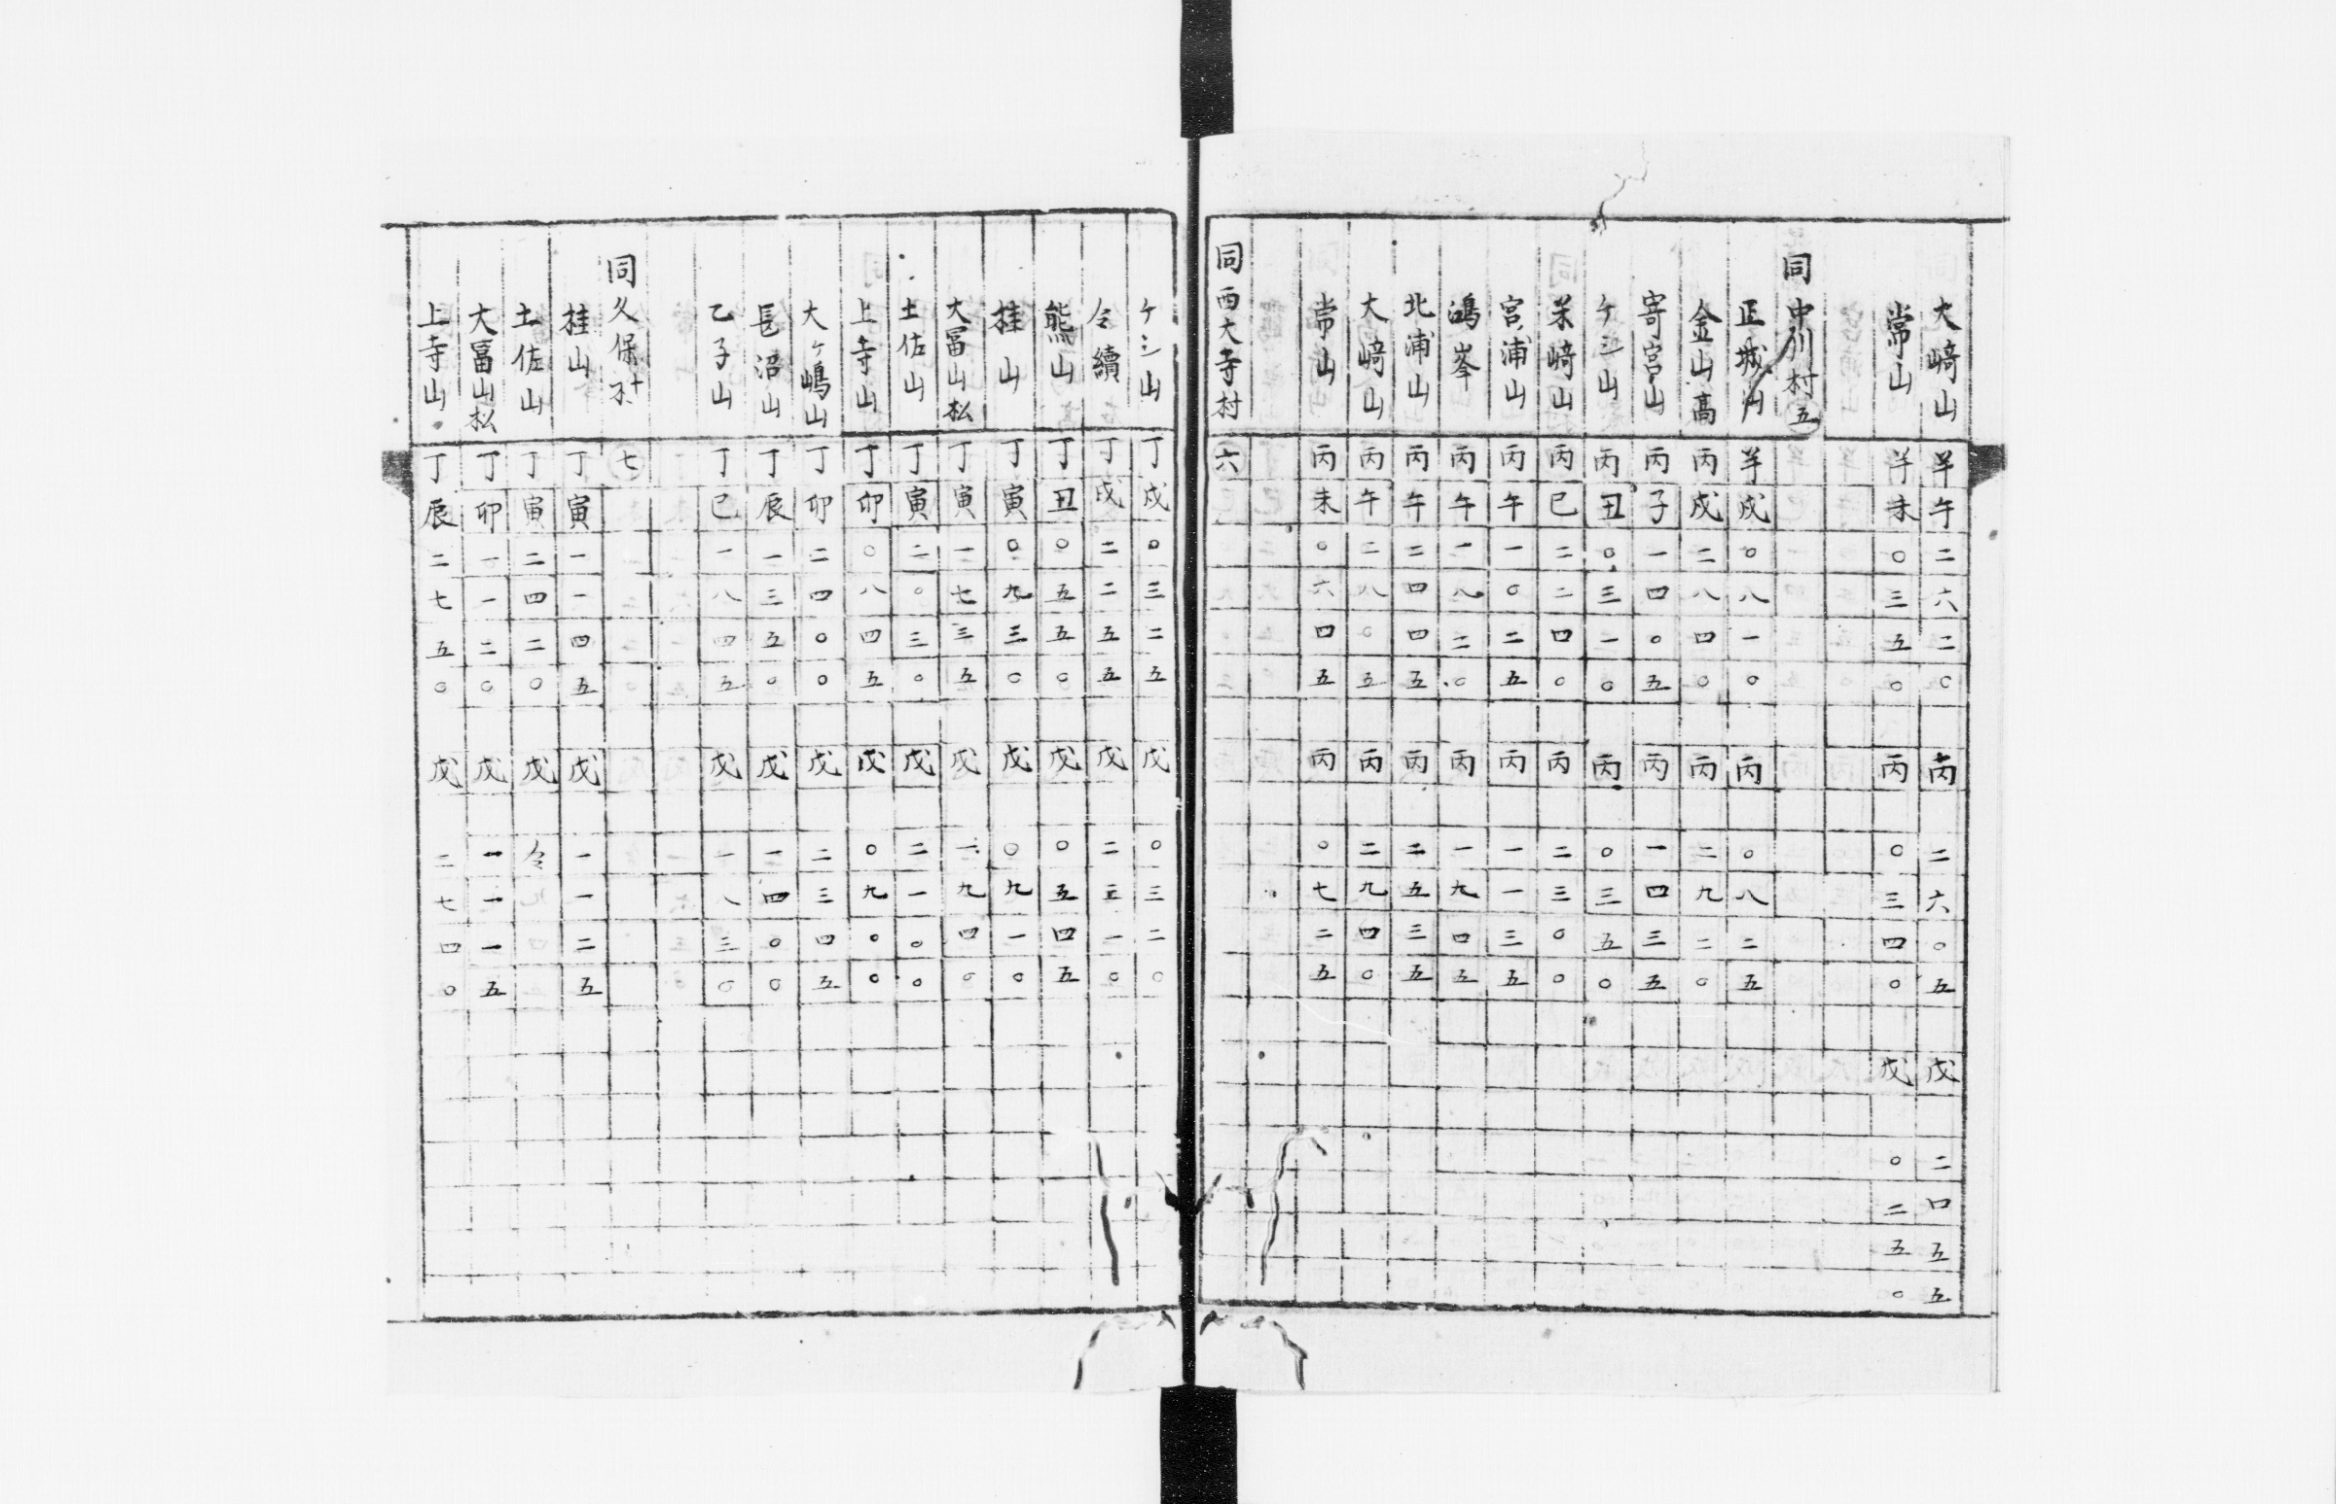 大﨑山 羊午二六二〇 丙二六〇五 戊二四五五
常山 羊未〇三五〇 丙〇三四〇 戊〇二五〇
同中川村 五
正城山 羊戌〇八一〇 丙〇八二五
金山髙 丙戌二八四〇 丙二九二〇
寄宮山 丙子一四〇五 丙一四三五
ケシ山 丙丑〇三一〇 丙〇三五〇
米﨑山 丙巳二二四〇 丙二三〇〇
宮浦山 丙午一〇二五 丙一一三五
鴻峯 丙午一八二〇 丙一九四五
北浦山 丙午二四四五 丙二五三五
大﨑山 丙午二八〇五 丙二九四〇
常山 丙未〇六四五 丙〇七二五
同西大寺村 六
ケシ山 丁戌〇三二五 戊〇三二〇
令續 丁戌二二五五 戊二二一〇
熊山 丁丑〇五五〇 戊〇五四五
桂山 丁寅〇九三〇 戊〇九一〇
大冨山松 丁寅一七三五 戊一九四〇
土佐山 丁寅二〇三〇 戊二一〇〇
上寺山 丁卯〇八四五 戊〇九〇〇
大ヶ嶋山 丁卯二四〇〇 戊二三四五
長沼山 丁辰一三五〇 戊一四〇〇
乙子山 丁巳一八四五 戊一八三〇
同久保村 七
桂山 丁寅一一四五 戊一一二五
土佐山 丁寅二四二〇 戊令
大冨山松 丁卯一一二〇 戊一一一五
上寺山 丁辰二七五〇 戊二七四〇